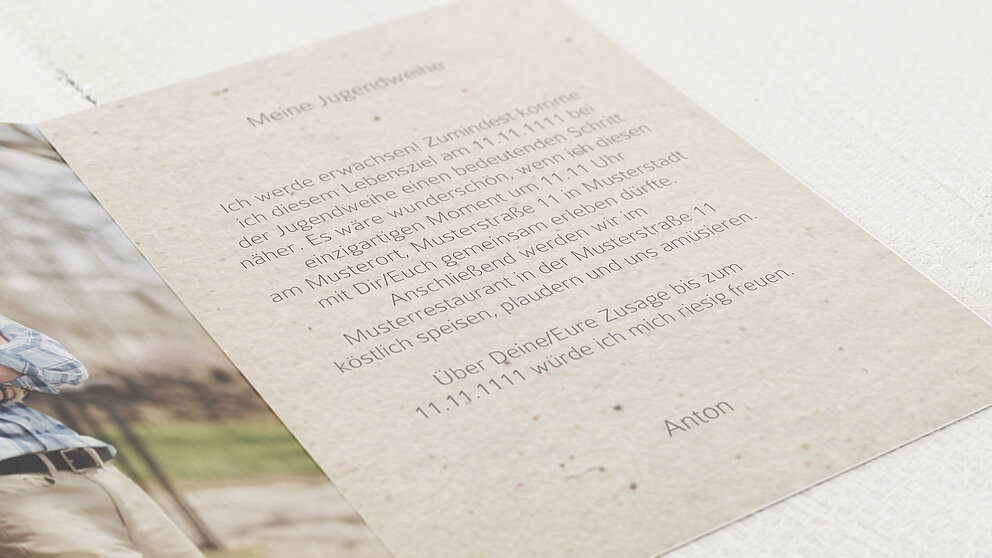 Meine Jugendweihe
Ich werde erwachsen! Zumindest komme
ich diesem Lebensziel am 11.11.1111 bei
der Jugendweihe einen bedeutenden Schritt
näher. Es wäre wunderschön, wenn ich diesen
einzigartigen Moment um 11.11 Uhr
am Musterort, Musterstraße 11 in Musterstadt
mit Dir/Euch gemeinsam erleben dürfte.
Anschließend werden wir im
Musterrestaurant in der Musterstraße 11
köstlich speisen, plaudern und uns amüsieren.
Über Deine/Eure Zusage bis zum
11.11.1111 würde ich mich riesig freuen.
Anton